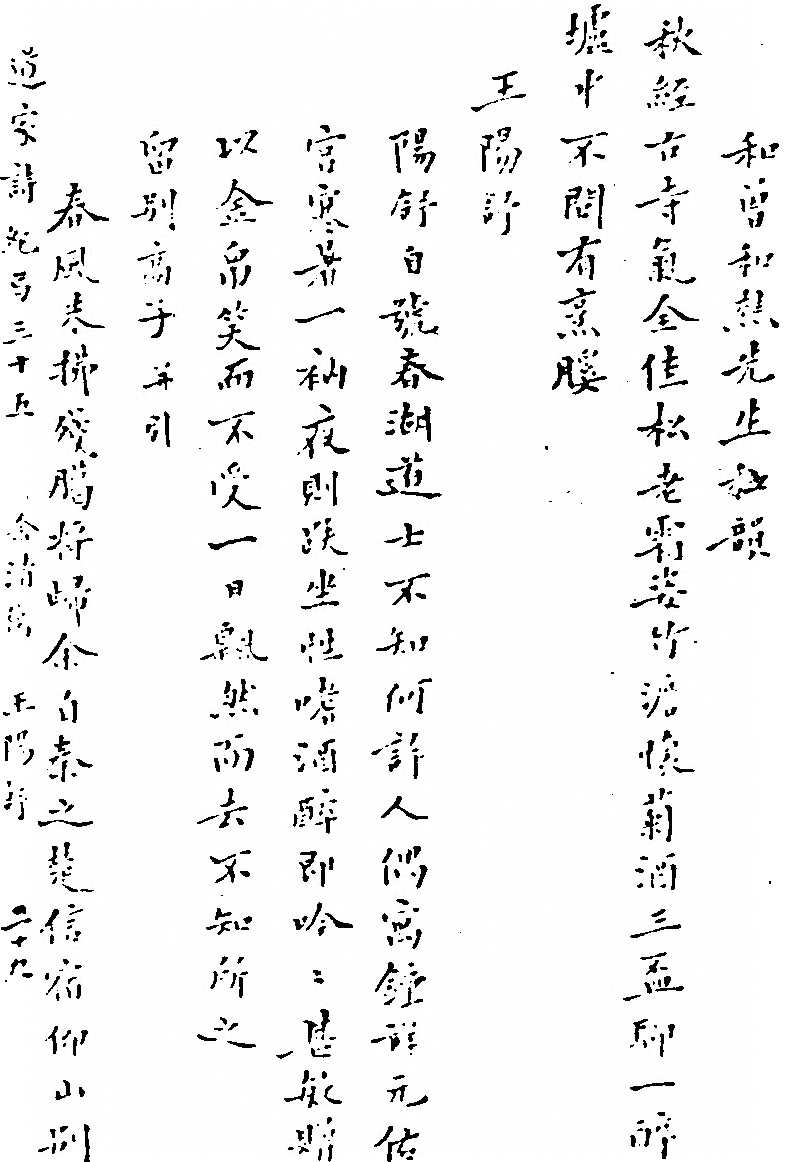 和曾和熬先生秋韻
秋經古寺氣全佳松老霜姿竹滄懷菊酒三盃聊一醉
墟中不問有烹膎
王陽舒
陽舒自號春湖道士不知何許人偶寓鍾祥元佑
宮寒暑一衲夜則趺坐性嗜酒醉即吟〻甚敏贈
以金帛笑而不受一日飄然而去不知所之
留別高子並引
春風春拂殘臘將歸余自秦之楚信宿仰山別
道家詩紀 三十五 余清 王陽舒 二十九